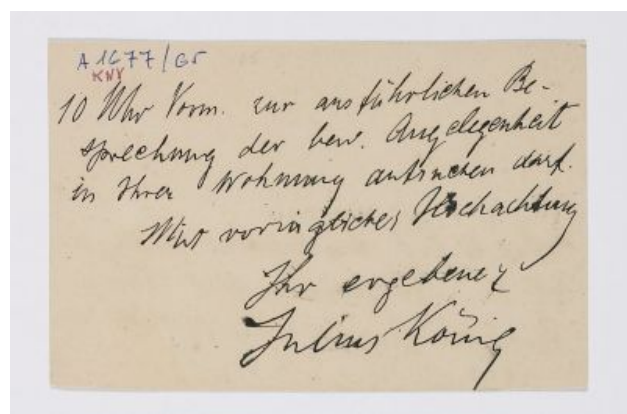 A 1677/65
KNV
10 Uhr Vorm. zur ausführlichen Be-
sprechung der bew. Angelegenheit
in Ihrer Wohnung aufsuchen darf.
Mit vorzüglicher Hochachtung
Ihr ergebener
Julius König